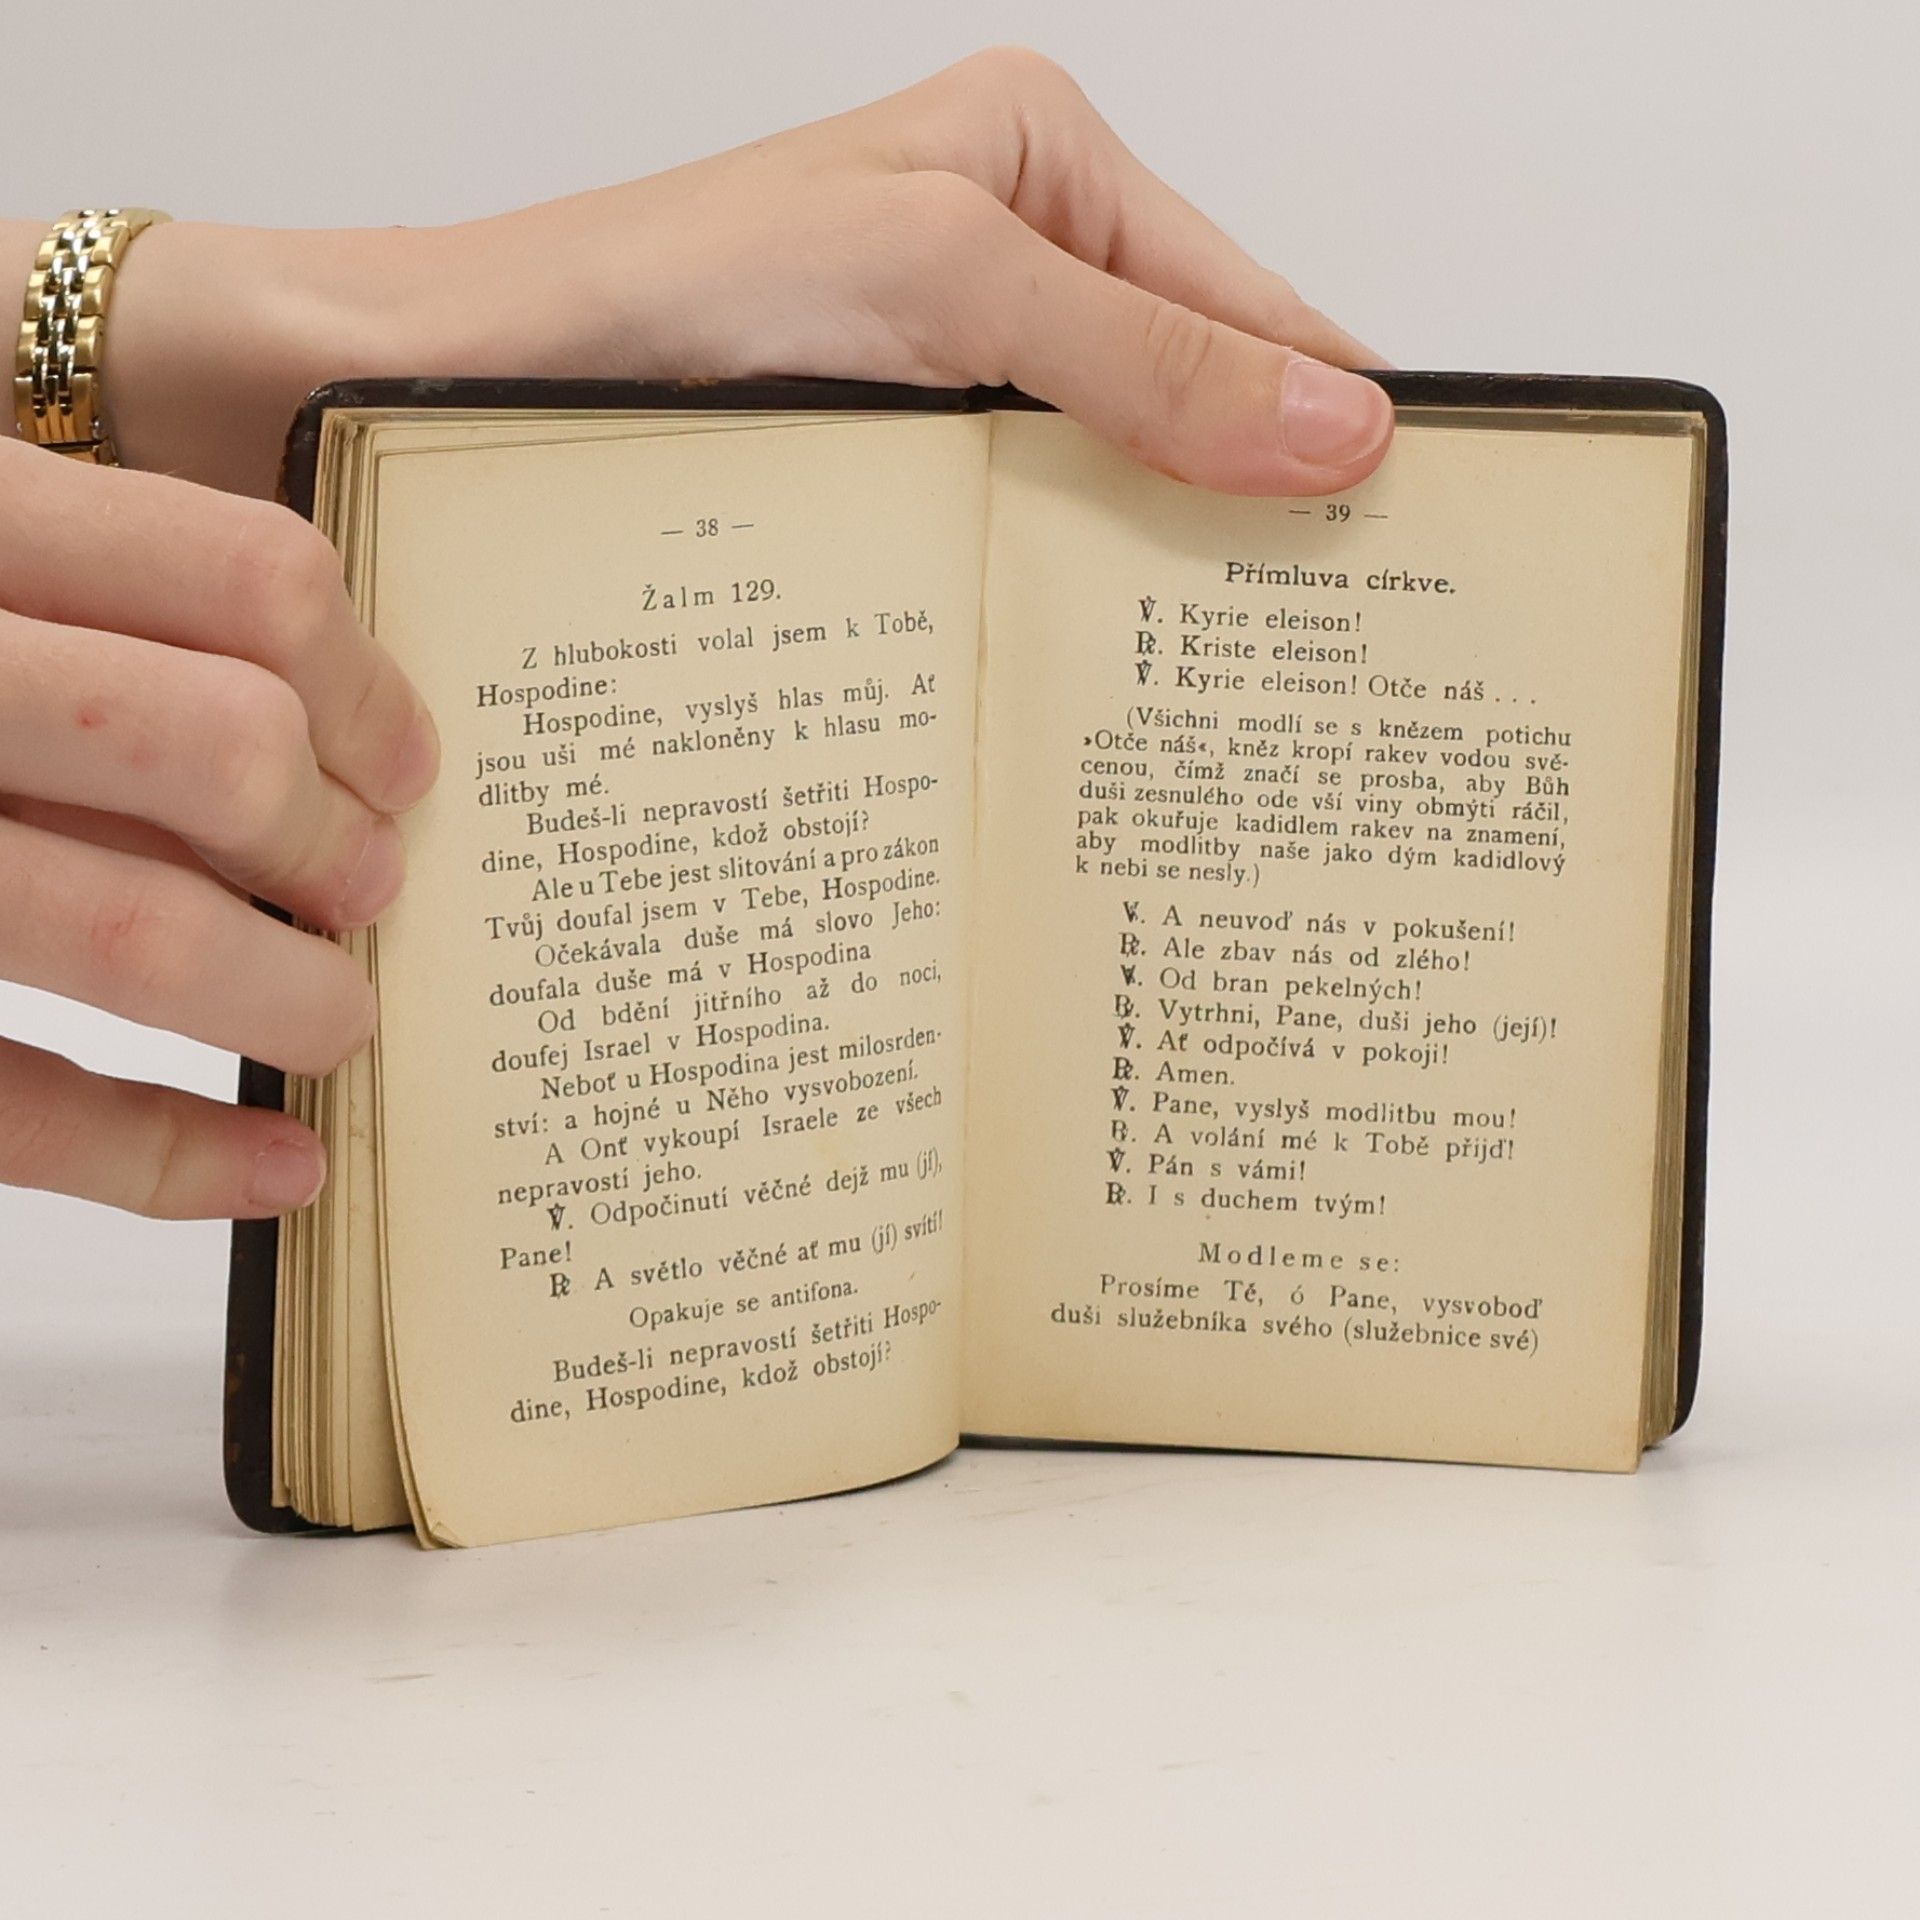 — 38 —
Žalm 129.
Z hlubokosti volal jsem k Tobě,
Hospodine:
Hospodine, vyslyš hlas můj. Ať
jsou uši mé nakloněny k hlasu mo-
dlitby mé.
Budeš-li nepravostí šetřiti Hospo-
dine, Hospodine, kdož obstojí?
Ale u Tebe jest slitování a pro zákon
Tvůj doufal jsem v Tebe, Hospodine.
Očekávala duše má slovo Jeho:
doufala duše má v Hospodina
Od bdění jitřního až do noci,
doufej Israel v Hospodina.
Neboť u Hospodina jest milosrden-
ství: a hojné u Něho vysvobození.
A Onť vykoupí Israele ze všech
nepravostí jeho.
℣. Odpočinutí věčné dejž mu (jí),
Pane!
℟ A světlo věčné ať mu (jí) svítí!
Opakuje se antifona.
Budeš-li nepravostí šetřiti Hospo-
dine, Hospodine, kdož obstojí?
— 39 —
Přímluva církve.
℣. Kyrie eleison!
℟. Kriste eleison!
℣. Kyrie eleison! Otče náš . . .
(Všichni modlí se s knězem potichu
»Otče náš«, kněz kropí rakev vodou svě-
cenou, čímž značí se prosba, aby Bůh
duši zesnulého ode vší viny obmýti ráčil,
pak okuřuje kadidlem rakev na znamení,
aby modlitby naše jako dým kadidlový
k nebi se nesly.)
℣. A neuvoď nás v pokušení!
℟. Ale zbav nás od zlého!
℣. Od bran pekelných!
℟. Vytrhni, Pane, duši jeho (její)!
℣. Ať odpočívá v pokoji!
℟. Amen.
℣. Pane, vyslyš modlitbu mou!
℟. A volání mé k Tobě přijď!
℣. Pán s vámi!
℟. I s duchem tvým!
Modleme se:
Prosíme Tě, ó Pane, vysvoboď
duši služebníka svého (služebnice své)